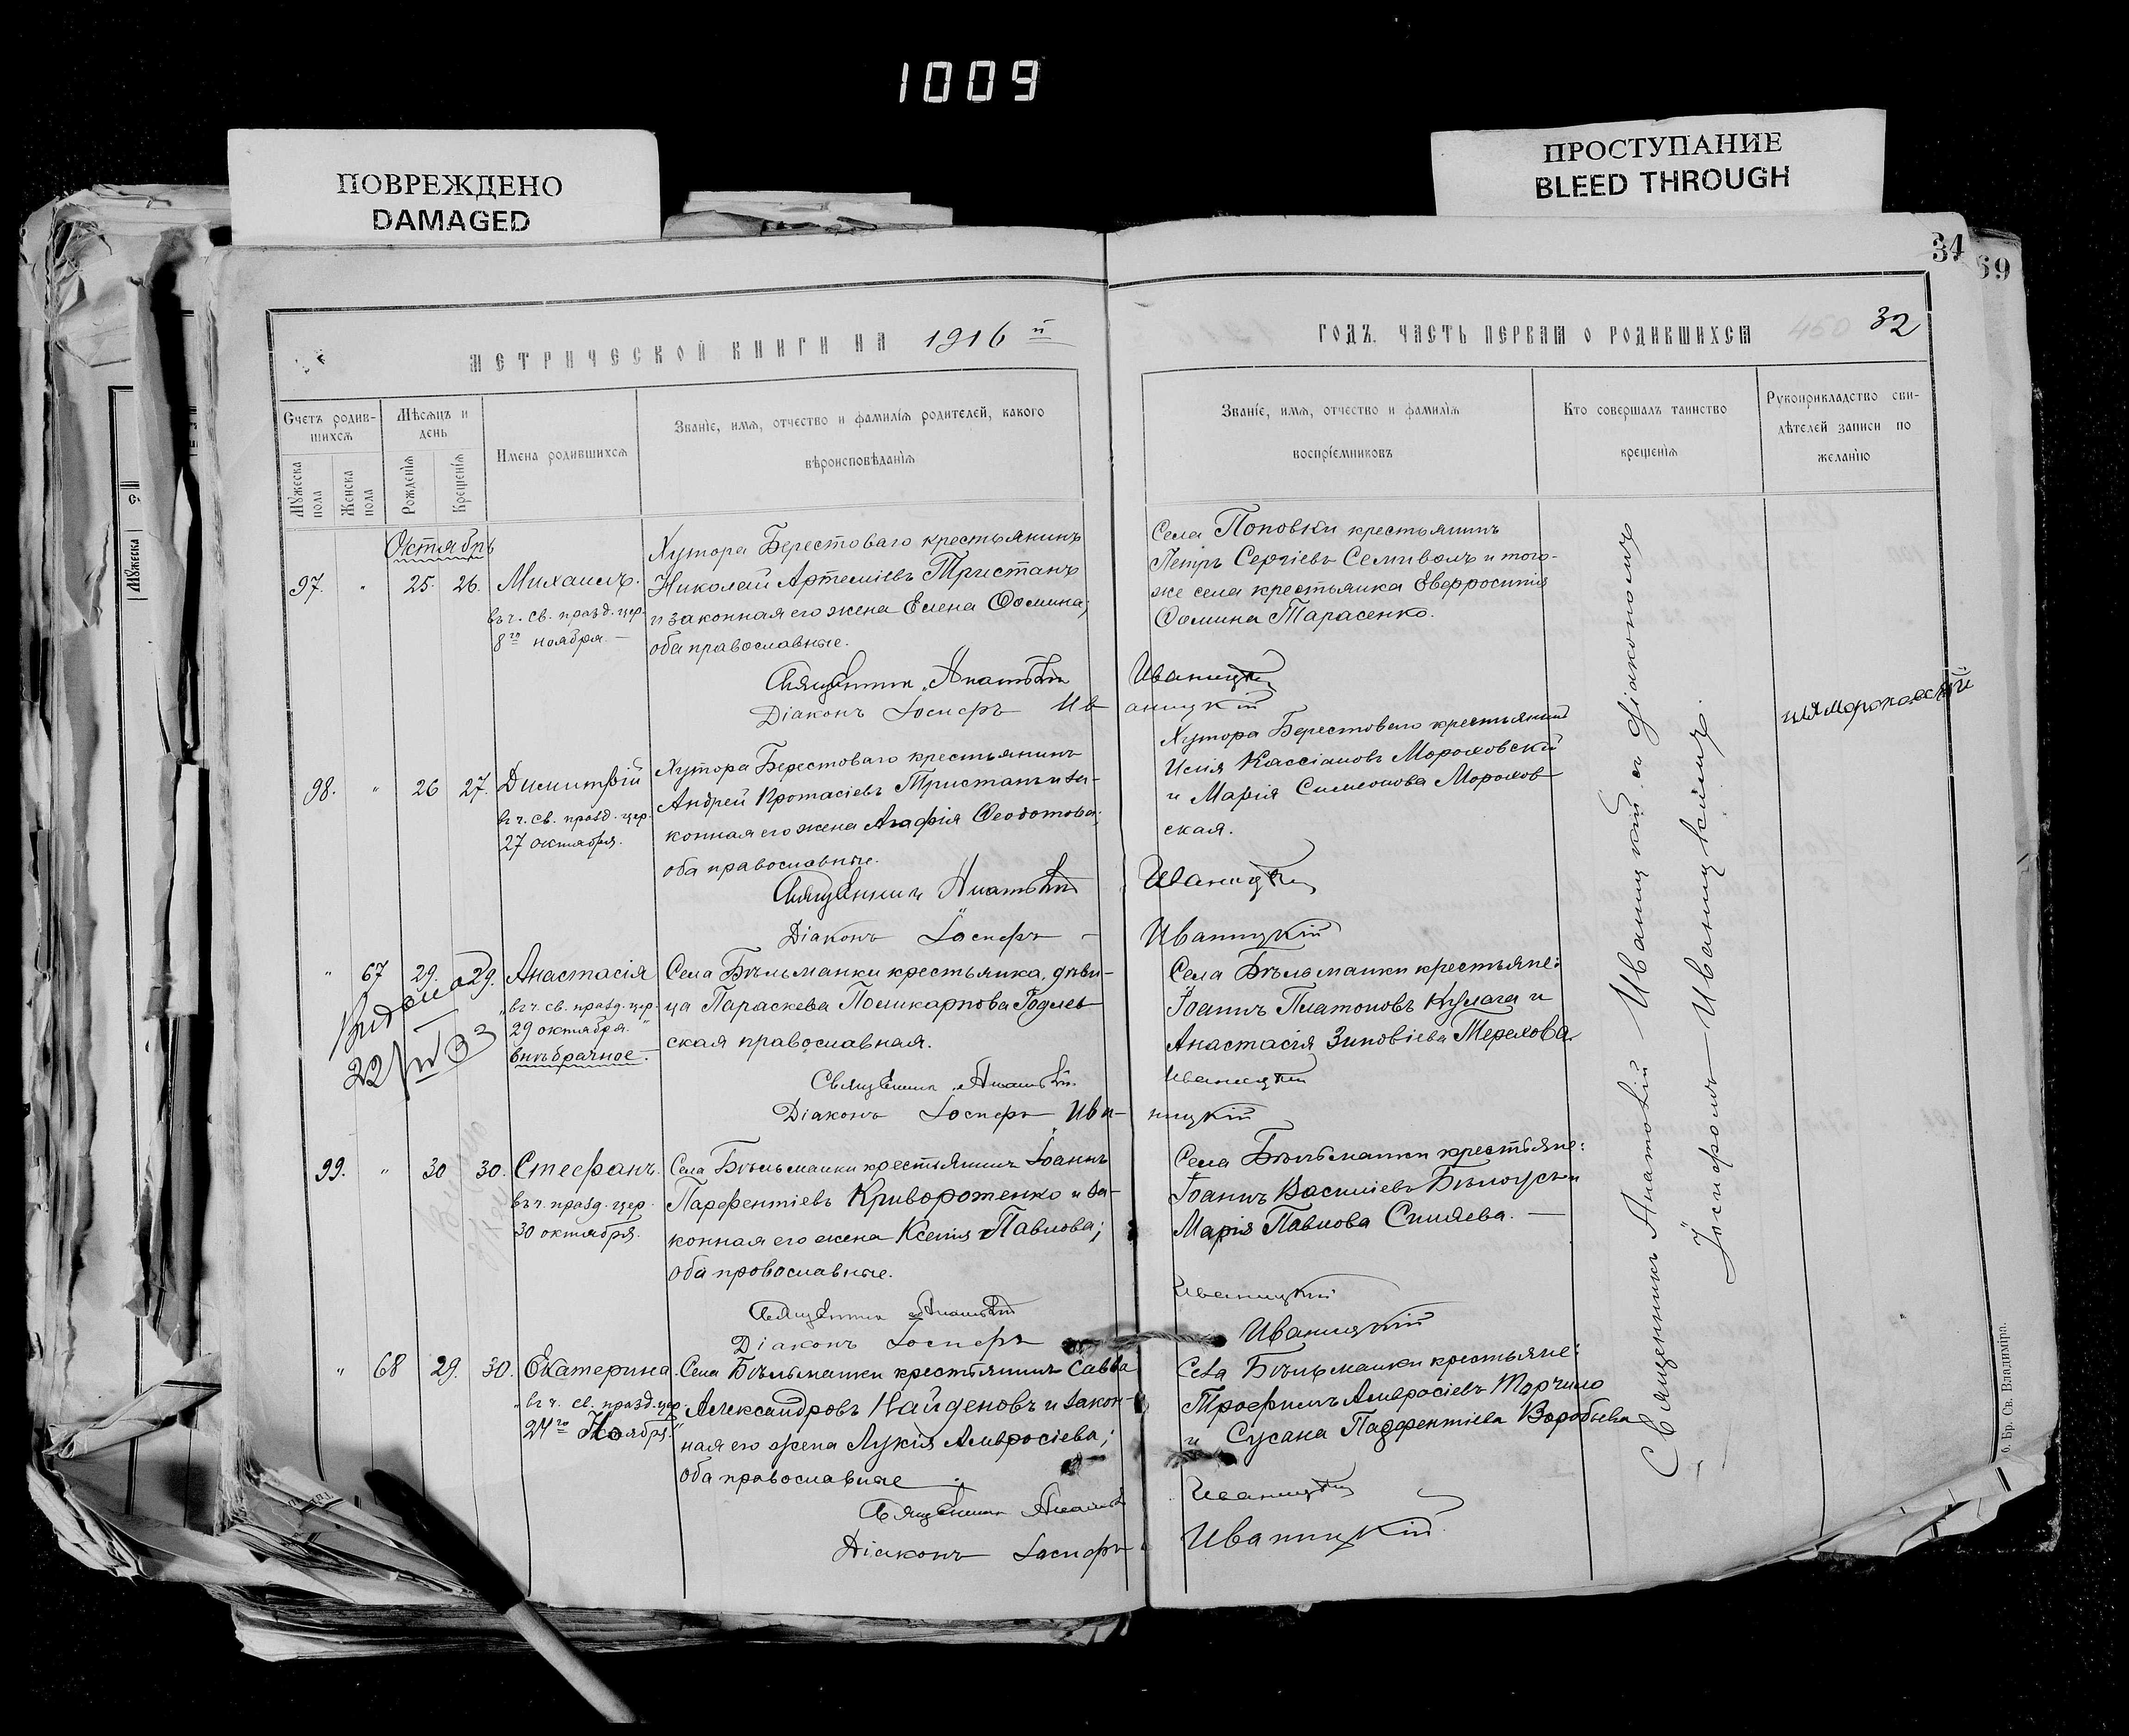 1009
ПОВРЕЖДЕНО
DAMAGED
ПРОСТУПАНИЕ
BLEED THROUGH
34
69
МЕТРИЧЕСКОЙ КНИГИ НА 1916 й
ГОДЪ. ЧАСТЬ ПЕРВАЯ О РОДИВШИХСЯ 450 32
Счетъ родив-
шихся
Мѣсяцъ и
день
Имена родившихся
Званіе, имя, отчество и фамилія родителей, какого
вѣроисповѣданія
Мужеска
пола
Женска
пола
Рожденія
Крещенія
Званіе, имя, отчество и фамилія
воспріемниковъ
Кто совершалъ таинство
крещенія
Рукоприкладство сви-
дѣтелей записи по
желанію
Мужеска
Октябрь
97. " 25. 26. Михаилъ.
въ ч. св. празд. цер.
8го ноября. —
Хутора Берестоваго крестьянинъ
Николай Артеміевъ Тристанъ
и законная его жена Елена Ѳомина;
оба православные.
Священникъ Анатолій
Діаконъ Іосифъ Ив
Села Поповки крестьянинъ
Петръ Сергіевъ Семиволъ и того-
же села крестьянка Евфросинія
Ѳомина Тарасенко.
Иваницкій
аницкій
98. " 26 27. Димитрій
въ ч. св. празд. цер.
27 октября.
Хутора Берестоваго крестьянинъ
Андрей Протасіевъ Тристанъ и за-
конная его жена Агафія Ѳеодотова;
оба православные.
Священникъ Анатолій
Діаконъ Іосифъ —
Хутора Берестоваго крестьянинъ
Илія Кассіановъ Мороховскій
и Марія Симеонова Морохов-
ская.
Иваницкій
Иваницкій
ИЯМороховскій
" 67 29. 29. Анастасія
въ ч. св. празд. цер.
29 октября. "
внѣбрачное.
Видано
22/VI 33
Села Бѣльманки крестьянка, дѣви-
ца Параскева Поликарпова Годлев-
ская православная.
Священникъ Анатолій
Діаконъ Іосифъ Ива-
Села Бѣльманки крестьяне:
Іоаннъ Платоновъ Кулага и
Анастасія Зиновіева Мерехова.
Иваницкій
ницкій
99. " 30 30. Стефанъ.
въ ч. празд. цер.
30 октября.
Села Бѣльманки крестьянинъ Іоаннъ
Парфентіевъ Криворотенко и за-
конная его жена Ксенія Павлова;
оба православные.
Священникъ Анатолій
Діаконъ Іосифъ
Села Бѣльманки крестьяне:
Іоаннъ Василіевъ Бѣлоусъ и
Марія Павлова Синяева. —
Иваницкій
Иваницкій
" 68 29. 30. Екатерина.
"въ ч. св. празд. цер.
24го Ноября."
Села Бѣльманки крестьянинъ Савва
Александровъ Найденовъ и закон-
ная его жена Лукія Амвросіева;
оба православные
Священникъ Анатолій
Діаконъ Іосифъ
Села Бѣльманки крестьяне:
Трофимъ Амвросіевъ Торчило
и Сусана Парфентіева Воробьева
Иваницкій
Иваницкій
Священникъ Анатолій Иваницкій съ діакономъ
Іосифомъ Иваницкимъ.
б. Бр. Св. Владиміра.